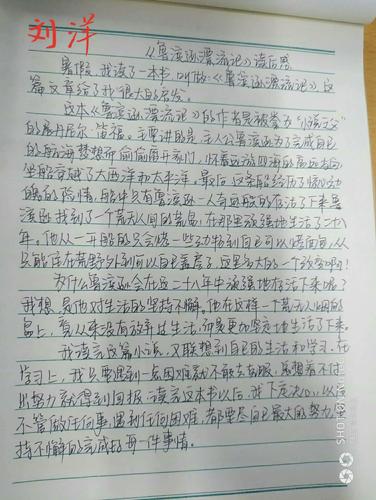 刘洋
《鲁滨逊漂流记》读后感
暑假,我读了一本书,叫做《鲁滨逊漂流记》,这
篇文章给了我很大的启发。
这本《鲁滨逊漂流记》的作者是被誉为"小说之父"
的丹尼尔·笛福。主要讲的是:主人公鲁滨逊为了完成自己
的航海梦想而偷偷离开家门,怀着远游四海的高远志向,
坐船穿越了大西洋和太平洋。最后,这条船经历了惊心动
魄的险情,船中只有鲁滨逊一人奇迹般的存活了下来。鲁
滨逊找到了一个荒无人烟的荒岛,在那里顽强地生活了二十八
年。他从一开始的只会
只能住在荒野外到可以自己盖房子,这是多大的一个改变啊!
为什么鲁滨逊会在这二十八年中顽强地存活下来呢?
我想,是他对生活的坚持不懈。他在这样一个荒无人烟的
岛上,看从来没有放弃过生活,而是更加坚定地生活了下来。
我读完这篇小说,又联想到自己的生活和学习。在
学习上,我只要遇到一点困难就不敢去克服,总想着不付
出努力就得到回报。读完这本书以后,我下定决心,以后
不管做任何事,遇到任何困难,都要尽自己最大的努力,坚
持不懈的完成好每一件事情。